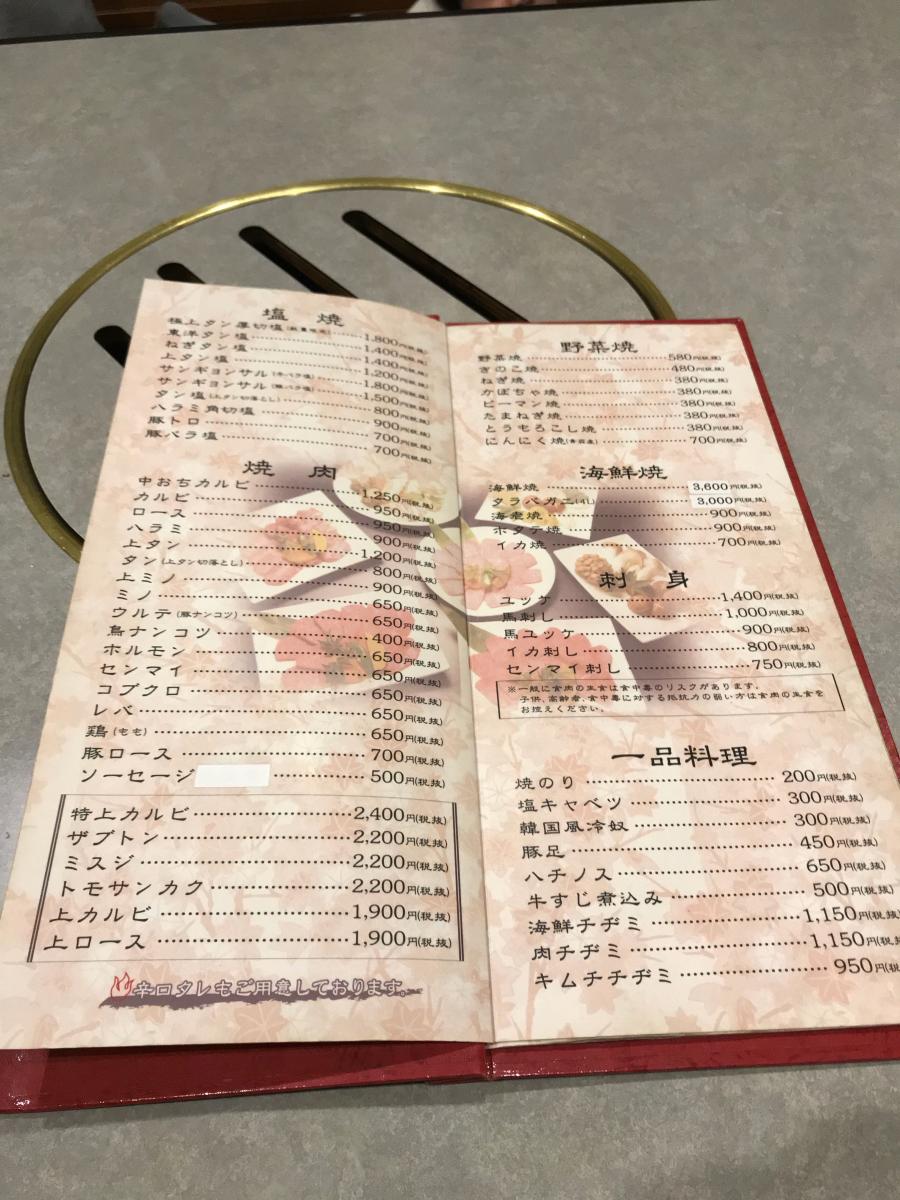 塩焼
極上タン厚切塩(数量限定) 1,800円(税抜)
東洋タン塩 1,400円(税抜)
ねぎタン塩 1,400円(税抜)
上タン塩 1,200円(税抜)
サンギョンサル(牛バラ塩) 1,800円(税抜)
サンギョンサル(豚バラ塩) 1,500円(税抜)
タン塩(上タン切落とし) 800円(税抜)
ハラミ角切塩 900円(税抜)
豚トロ 700円(税抜)
豚バラ塩 700円(税抜)
焼肉
中おちカルビ 1,250円(税抜)
カルビ 950円(税抜)
ロース 950円(税抜)
ハラミ 900円(税抜)
上タン 1,200円(税抜)
タン(上タン切落とし) 800円(税抜)
上ミノ 900円(税抜)
ミノ 650円(税抜)
ウルテ(豚ナンコツ) 650円(税抜)
鳥ナンコツ 400円(税抜)
ホルモン 650円(税抜)
センマイ 650円(税抜)
コブクロ 650円(税抜)
レバ 650円(税抜)
鶏(もも) 650円(税抜)
豚ロース 700円(税抜)
ソーセージ 500円(税抜)
特上カルビ 2,400円(税抜)
ザブトン 2,200円(税抜)
ミスジ 2,200円(税抜)
トモサンカク 2,200円(税抜)
上カルビ 1,900円(税抜)
上ロース 1,900円(税抜)
辛口タレもご用意しております。
野菜焼
野菜焼 580円(税抜)
きのこ焼 480円(税抜)
ねぎ焼 380円(税抜)
かぼちゃ焼 380円(税抜)
ピーマン焼 380円(税抜)
たまねぎ焼 380円(税抜)
とうもろこし焼 380円(税抜)
にんにく焼(青森産) 700円(税抜)
海鮮焼
海鮮焼 3,600円(税抜)
タラバガニ(4L) 3,000円(税抜)
海老焼 900円(税抜)
ホタテ焼 900円(税抜)
イカ焼 700円(税抜)
刺身
ユッケ 1,400円(税抜)
馬刺し 1,000円(税抜)
馬ユッケ 900円(税抜)
イカ刺し 800円(税抜)
センマイ刺し 750円(税抜)
※一般に食肉の生食は食中毒のリスクがあります。
子供、高齢者、食中毒に対する抵抗力の弱い方は食肉の生食を
お控えください。
一品料理
焼のり 200円(税抜)
塩キャベツ 300円(税抜)
韓国風冷奴 300円(税抜)
豚足 450円(税抜)
ハチノス 650円(税抜)
牛すじ煮込み 500円(税抜)
海鮮チヂミ 1,150円(税抜)
肉チヂミ 1,150円(税抜)
キムチチヂミ 950円(税抜)